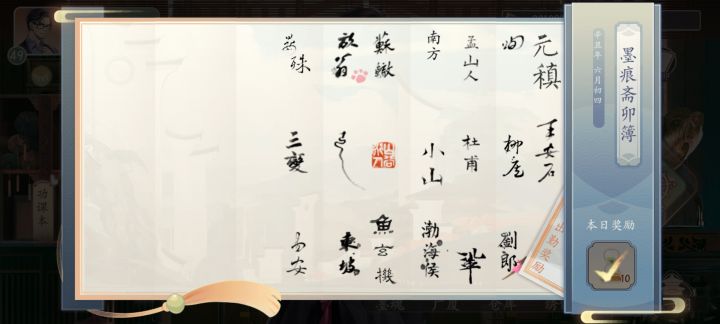 墨痕斋卯簿
辛丑年 六月初四
本日奖励
10
元稹
王安石
劉郎
柳
孟山人
杜甫
南方
小山
渤海侯
蘇轍
魚玄機
放翁
東坡
三變
易安
出勤奖励
功课本
49